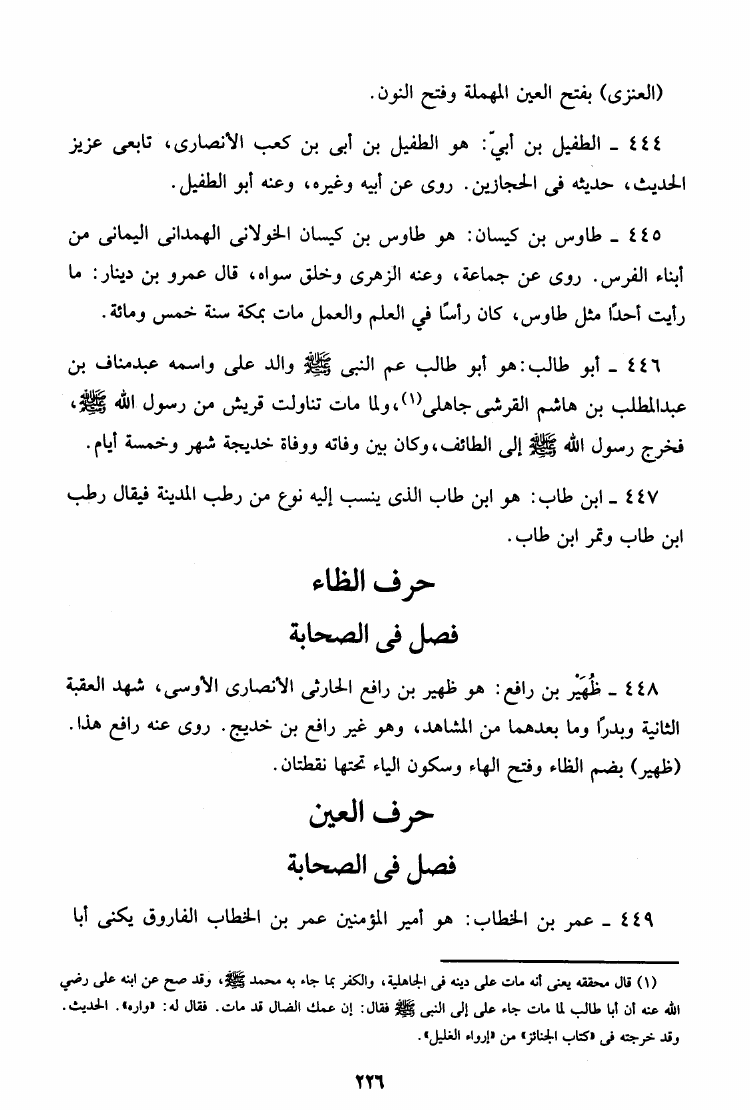 (العنزى) بفتح العين المهملة وفتح النون.
٤٤٤ ـ الطفيل بن أبيّ: هو الطفيل بن أبى بن كعب الأنصارى، تابعى عزيز
الحديث، حديثه فى الحجازين. روى عن أبيه وغيره، وعنه أبو الطفيل.
٤٤٥ ـ طاوس بن كيسان: هو طاوس بن كيسان الخولانى الهمدانى اليمانى من
أبناء الفرس. روى عن جماعة، وعنه الزهرى وخلق سواه، قال عمرو بن دينار: ما
رأيت أحدًا مثل طاوس، كان رأسًا في العلم والعمل مات بمكة سنة خمس ومائة.
٤٤٦ ـ أبو طالب: هو أبو طالب عم النبى ﷺ والد على واسمه عبدمناف بن
عبدالمطلب بن هاشم القرشى جاهلى(١)، ولما مات تناولت قريش من رسول الله ﷺ،
فخرج رسول الله ﷺ إلى الطائف، وكان بين وفاته ووفاة خديجة شهر وخمسة أيام.
٤٤٧ ـ ابن طاب: هو ابن طاب الذى ينسب إليه نوع من رطب المدينة فيقال رطب
ابن طاب وتمر ابن طاب.
حرف الظاء
فصل فى الصحابة
٤٤٨ ـ ظُهَيْر بن رافع: هو ظهير بن رافع الحارثى الأنصارى الأوسى، شهد العقبة
الثانية وبدرًا وما بعدهما من المشاهد، وهو غير رافع بن خديج. روى عنه رافع هذا.
(ظهير) بضم الظاء وفتح الهاء وسكون الياء تحتها نقطتان.
حرف العين
فصل فى الصحابة
٤٤٩ ـ عمر بن الخطاب: هو أمير المؤمنين عمر بن الخطاب الفاروق يكنى أبا
(١) قال محققه يعنى أنه مات على دينه فى الجاهلية، والكفر بما جاء به محمد ﷺ، وقد صح عن ابنه على رضي
الله عنه أن أبا طالب لما مات جاء على إلى النبى ﷺ فقال: إن عمك الضال قد مات. فقال له: «واره». الحديث.
وقد خرجته فى «كتاب الجنائز» من «إرواء الغليل».
٢٢٦